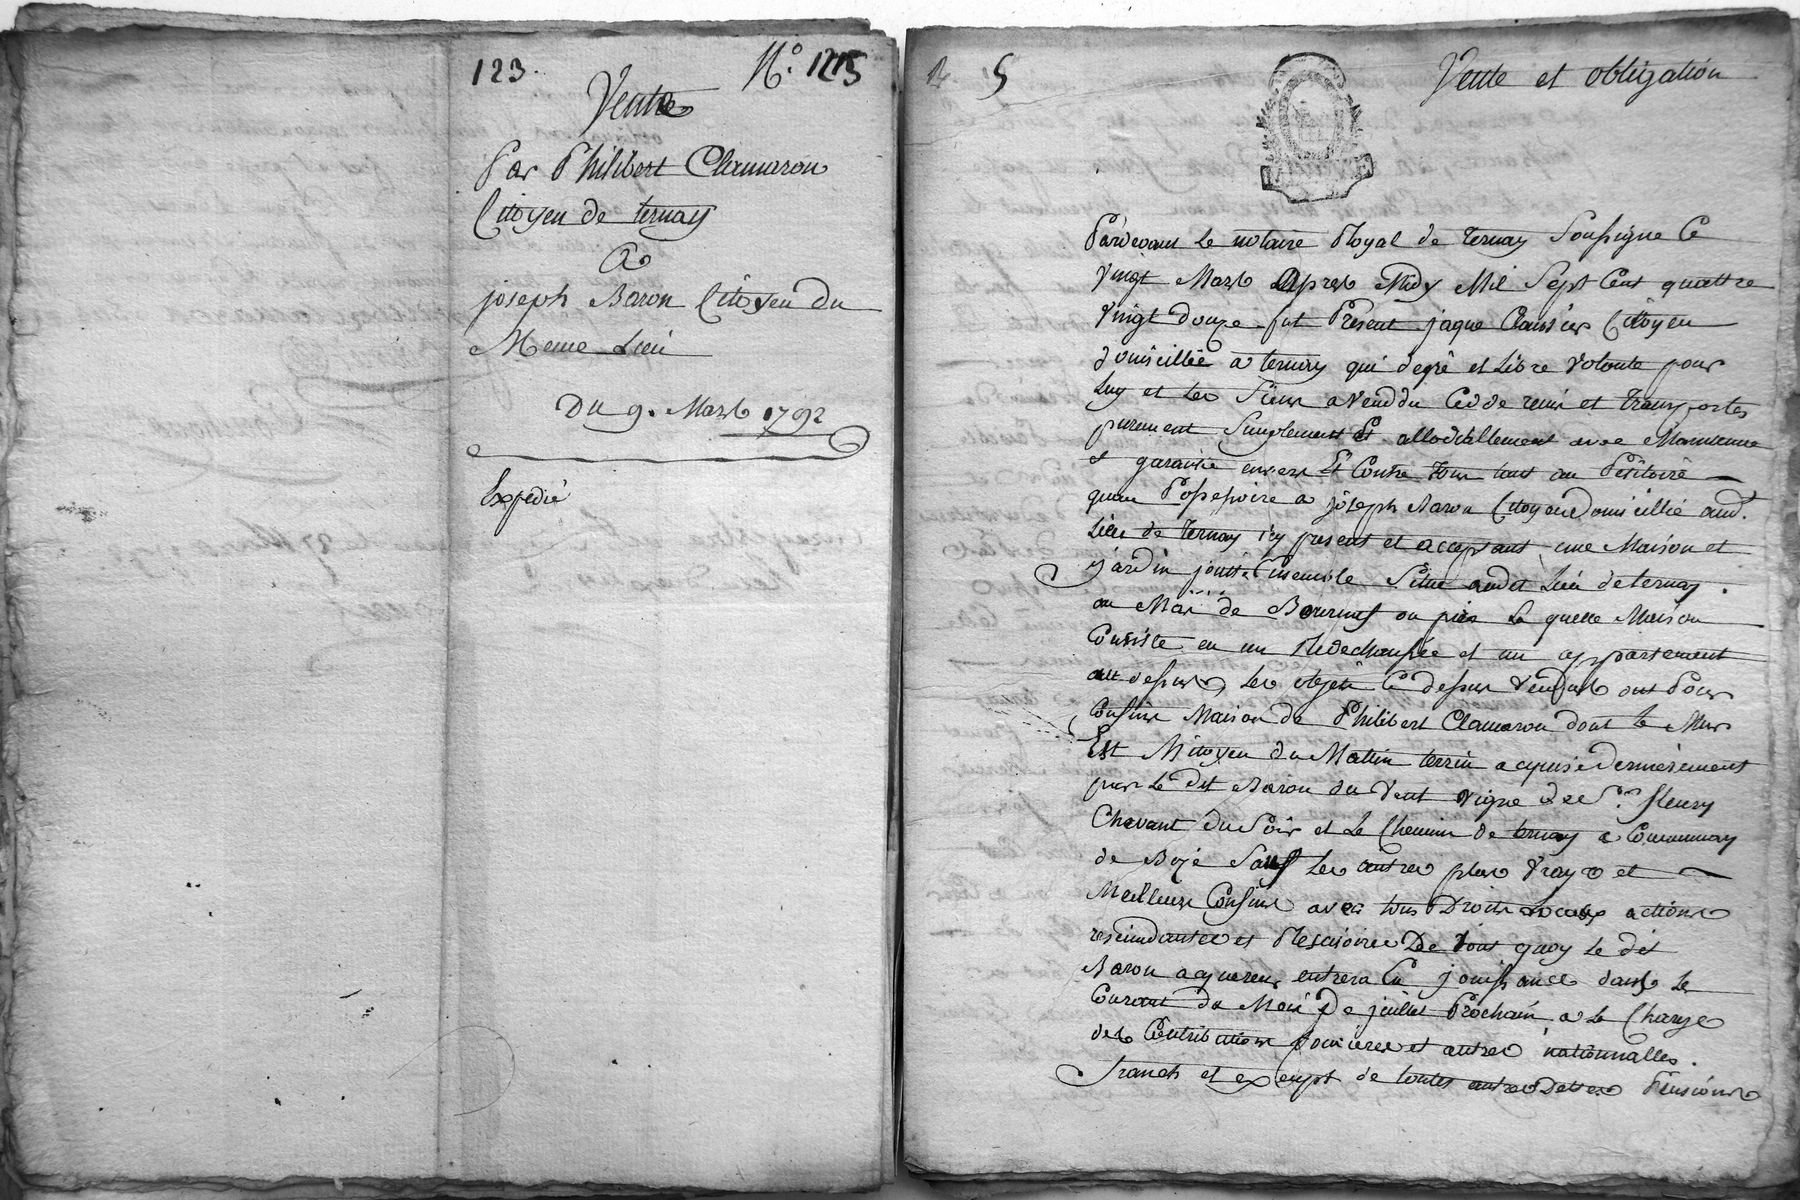 123.
N.º 1215
Vente
Par Philibert Clamaron
Citoyen de ternay
A
joseph Baron Citoyen du
Meme Lieu
Du 9. Mars 1792
Expedié
5
Vente et obligation
Pardevant Le notaire Royal de ternay Soussigne Ce
Vingt Mars Apres Midy Mil Sept Cent quattre
Vingt douze fut Présent jaque Clausier Citoyen
domicillie a ternay qui de gré et Libre Volonte pour
Luy et Les Siens a Venddu Cedde remis et transportes
purement Simplement Et allodiallement avec Maintenue
et garantie envers Et Contre tous tant au Petitoire
quau Possessoire a joseph Baron Citoyen domicillie aud.
Lieu de ternay icy present et acceptant une Maison et
jardin joints Ensemble Situe audit Lieu de ternay.
au Mas de Bournas ou pies La quelle Maison
Consiste en un Rédechaussée et un appartement
au dessus, Les objets Cy dessus Vendus ont Pour
Confins Maison de Philibert Clamaron dont le Mur
Est Mitoyen du Mattin terrin acquis Dernierement
par Le dit Baron du Vent Vigne de Sr. fleury
Chavant du Soir et Le Chemin de ternay a Communay
de Bize Sauf Les autres plus Vrays et
Meilleurs Confins avec tous Droits actions
rescindantes et Rescisoires De tout quoy Le dit
Baron acquereur entrera En jouissance dans Le
Courant du Mois De juillet Prochain a La Charge
des Contributions foncieres et autres nationnalles.
franch et exempt de toutes autres Dettes Pensions